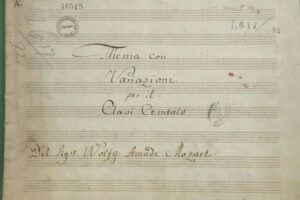 40545
Thema con
Variazioni
per il
Clavi Cembalo
Del Sigre Wolfg: Amade Mozart